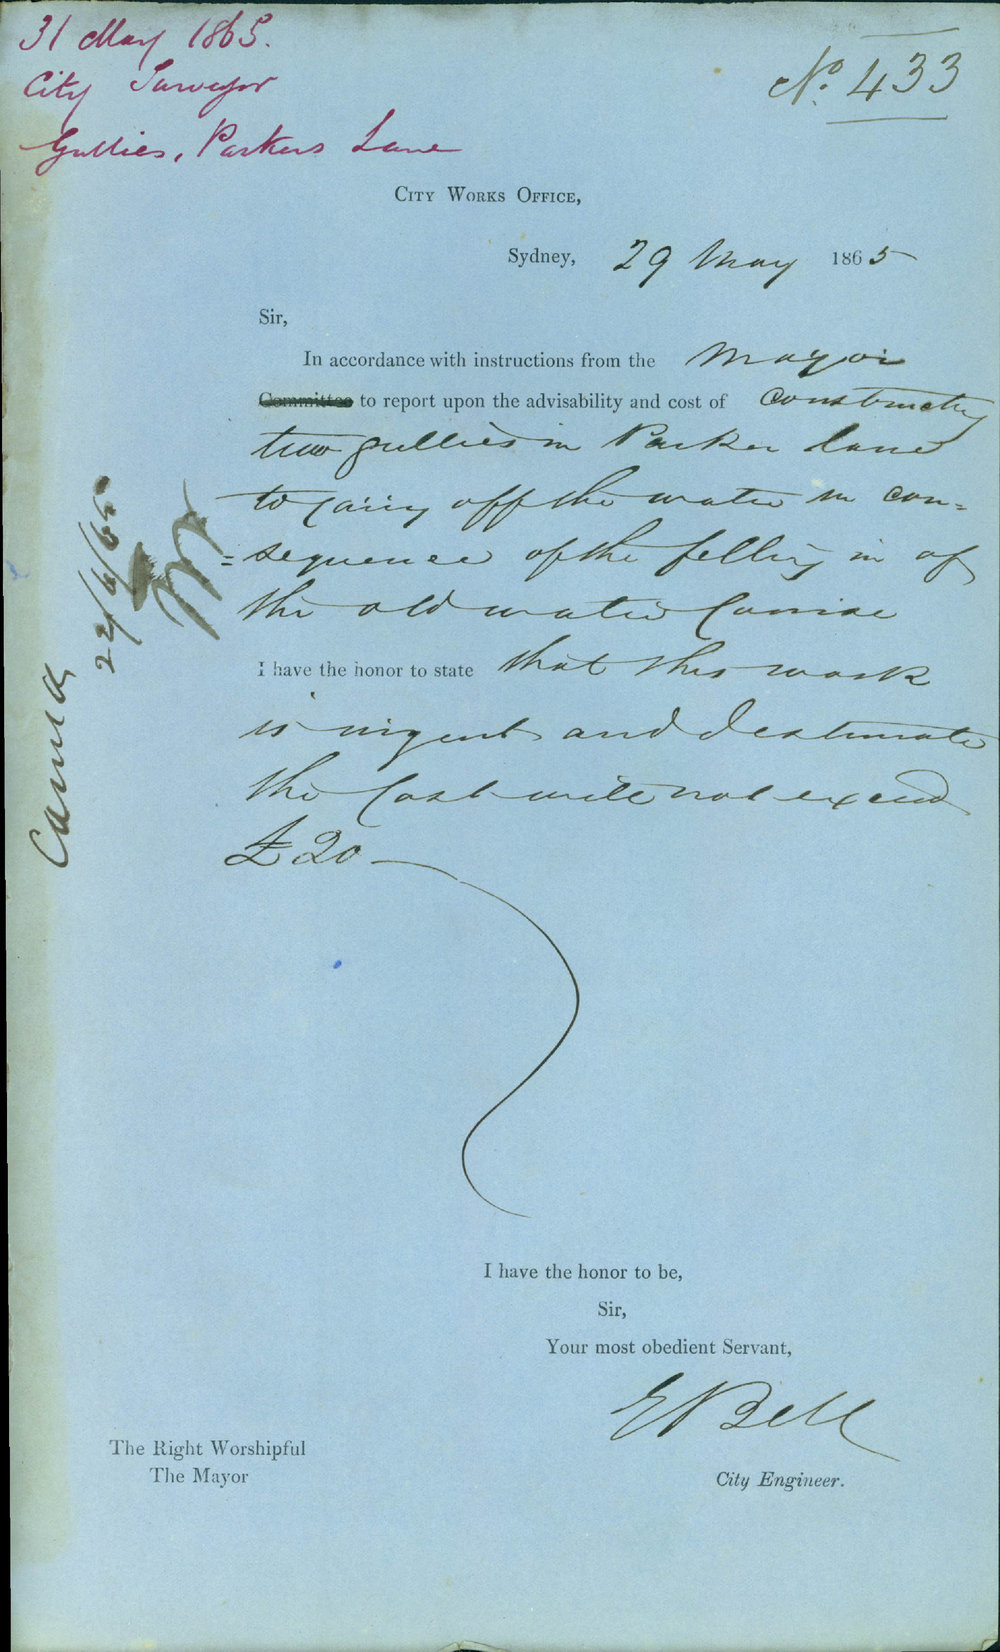 31 May 1865.
City Surveyor
Gullies, Parkers Lane
No. 433
City Works Office,
Sydney, 29 May 1865
Sir,
In accordance with instructions from the Mayor
Committee to report upon the advisability and cost of Constructing
two gullies in Parker lane
to carry off the water in con=
=sequence of the felling in of
the old water Course
I have the honor to state that this work
is urgent and I estimate
the Cost will not exceed
£20
22/6/65
I have the honor to be,
Sir,
Your most obedient Servant,
E Bell
City Engineer.
The Right Worshipful
The Mayor